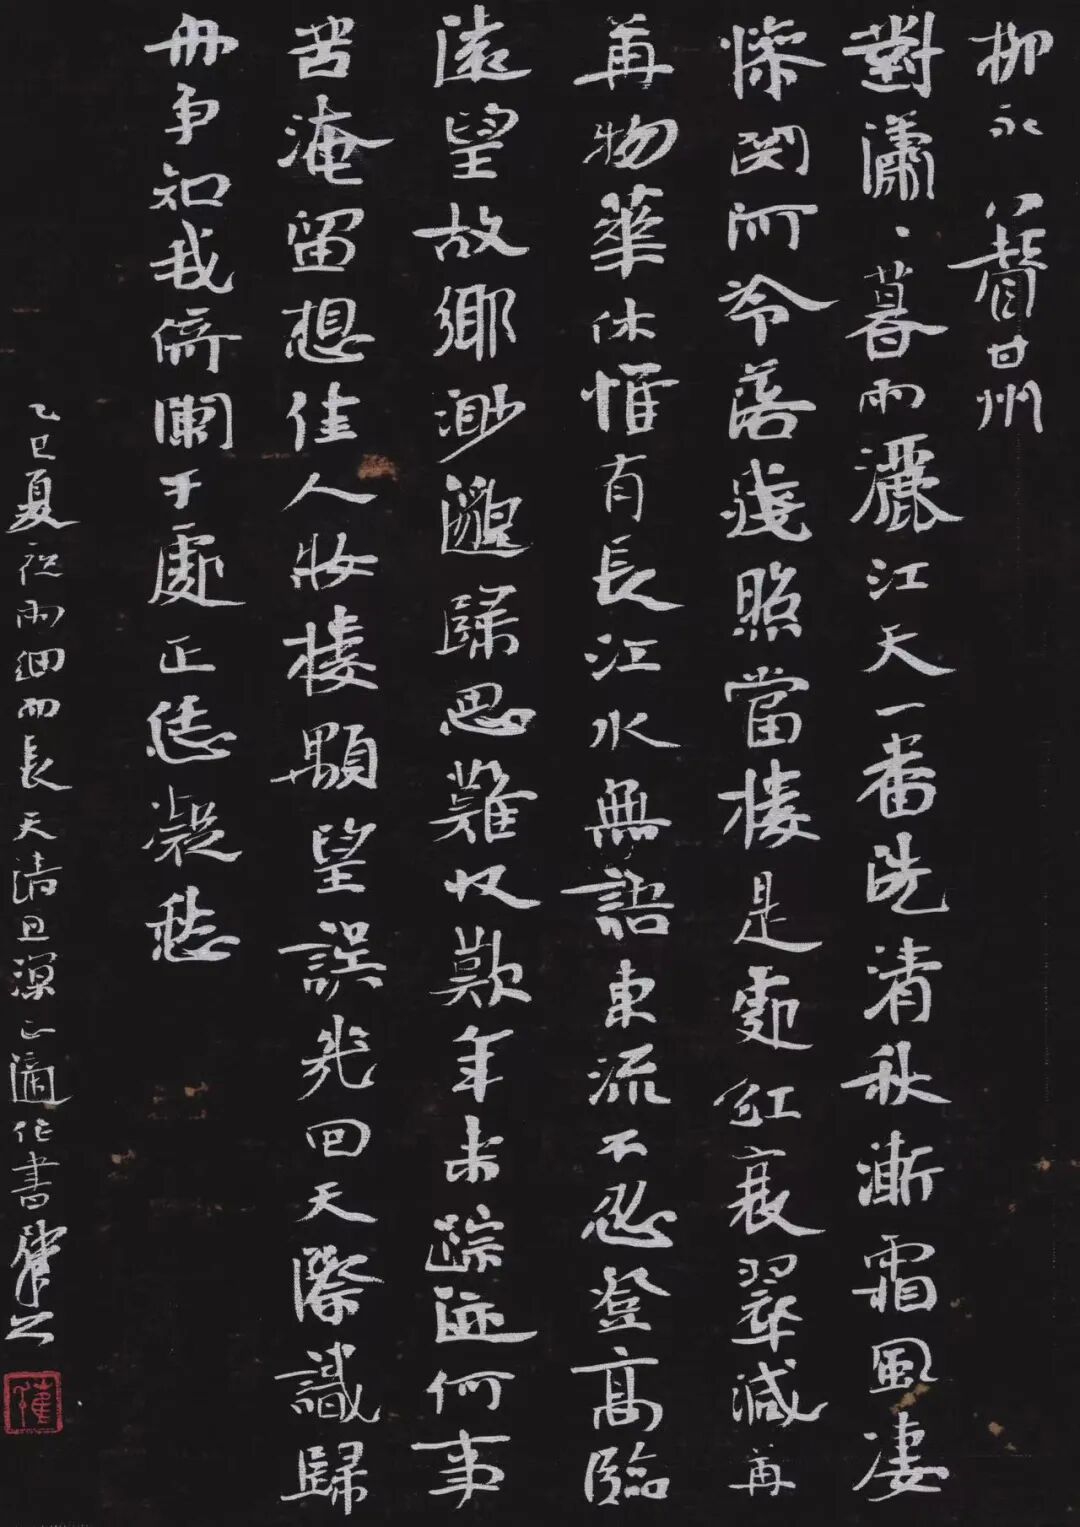 柳永 八聲甘州
對瀟〻暮雨灑江天一番洗清秋漸霜風凄
慘關河冷落殘照當樓是處紅衰翠減苒
苒物華休惟有長江水無語東流不忍登高臨
遠望故鄉渺邈歸思難收歎年來蹤迹何事
苦淹留想佳人妝樓顒望誤幾回天際識歸
舟爭知我倚闌干處正恁凝愁
乙巳夏夜雨細而長天清且涼正適作書